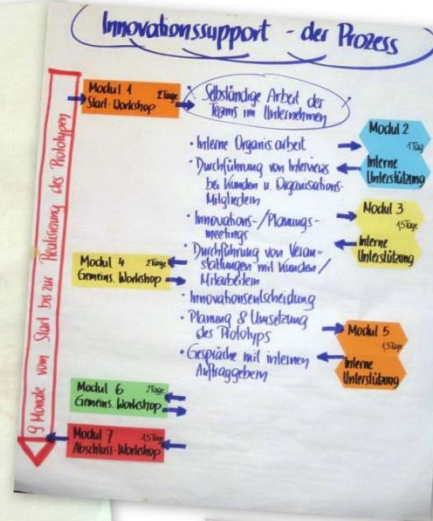 Innovationssupport - der Prozess
9 Monate vom Start bis zur Realisierung des Prototypen
Modul 1
2Tage
Start-Workshop
Selbständige Arbeit der
Teams im Unternehmen
• Interne Organis.arbeit
• Durchführung von Interviews
bei Kunden u. Organisations-
Mitgliedern
• Innovations-/Planungs-
meetings
• Durchführung von Veran-
staltungen mit Kunden/
Mitarbeitern
• Innovationsentscheidung
• Planung & Umsetzung
des Prototyps
• Gespräche mit internen
Auftraggebern
Modul 2
1Tag
Interne
Unterstützung
Modul 3
1,5Tage
Interne
Unterstützung
Modul 4
2Tage
Gemeins. Workshop
Modul 5
1,5Tage
Interne
Unterstützung
Modul 6
2Tage
Gemeins. Workshop
Modul 7
1,5Tage
Abschluss-Workshop